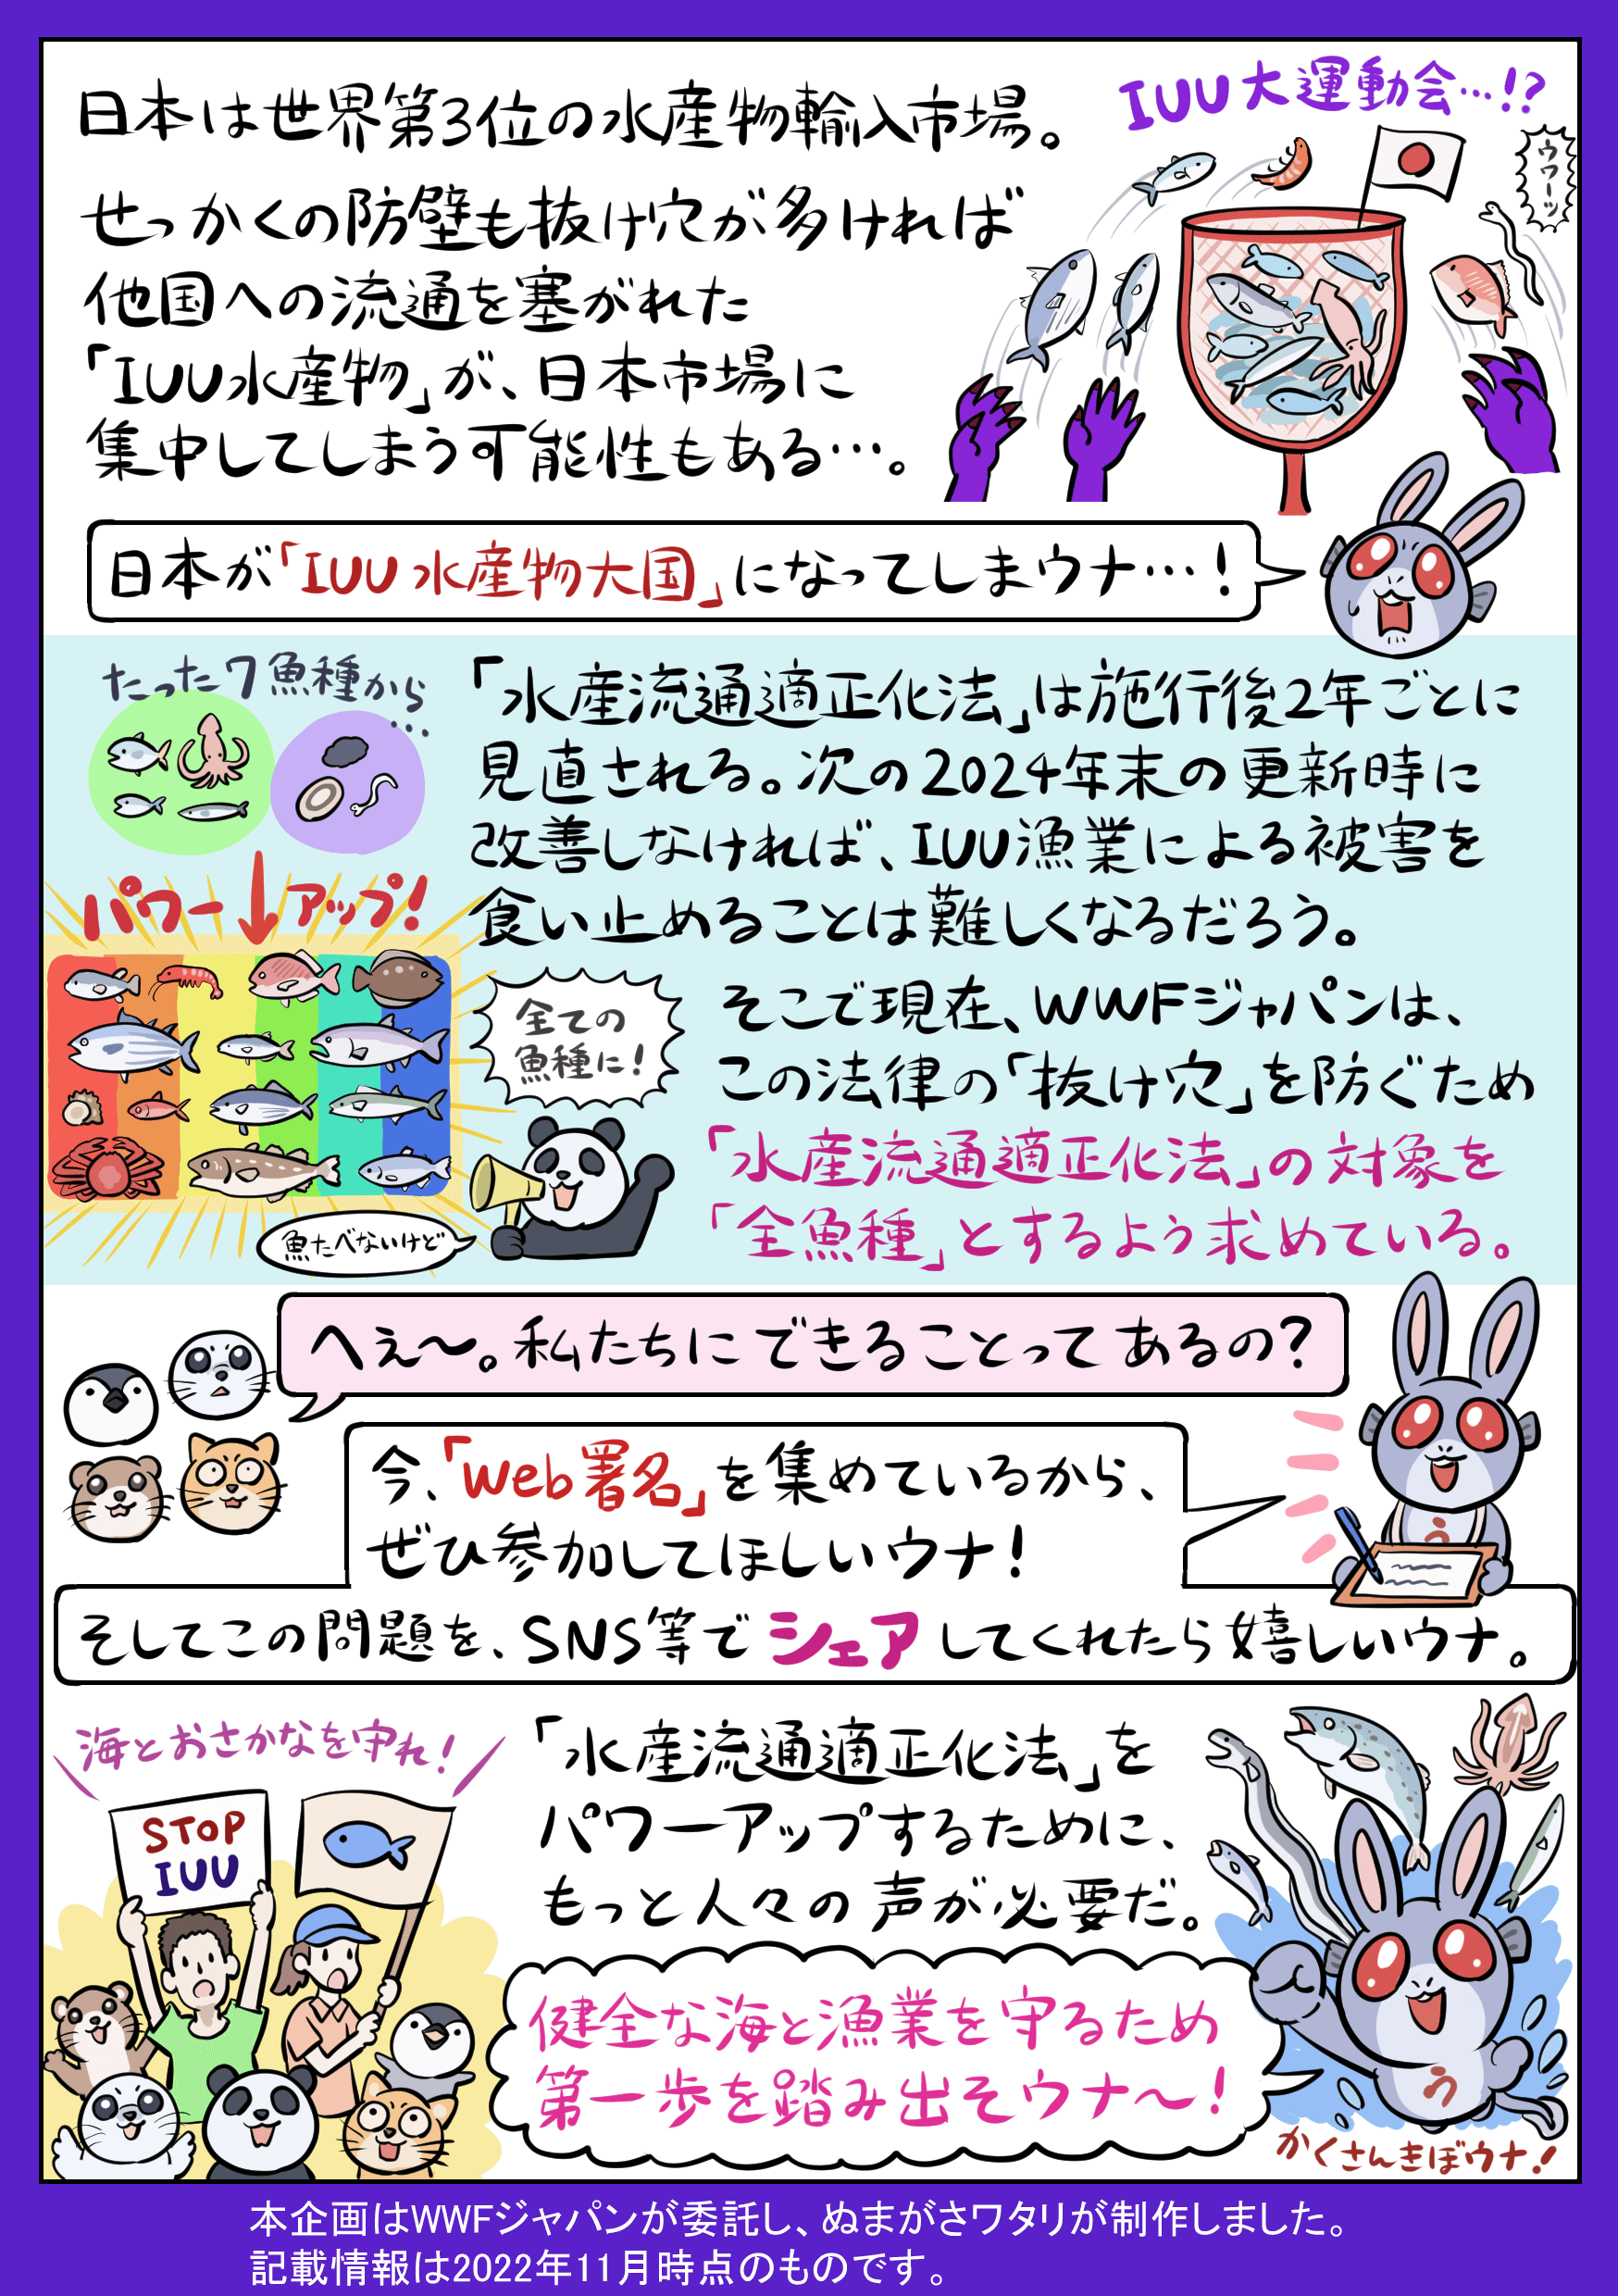 日本は世界第3位の水産物輸入市場。
IUU大運動会…!?
ウワーッ
せっかくの防壁も抜け穴が多ければ
他国への流通を塞がれた
「IUU水産物」が、日本市場に
集中してしまう可能性もある…。
日本が「IUU水産物大国」になってしまウナ…!
たった7魚種から…
パワーアップ!
「水産流通適正化法」は施行後2年ごとに
見直される。次の2024年末の更新時に
改善しなければ、IUU漁業による被害を
食い止めることは難しくなるだろう。
全ての
魚種に!
魚たべないけど
そこで現在、WWFジャパンは、
この法律の「抜け穴」を防ぐため
「水産流通適正化法」の対象を
「全魚種」とするよう求めている。
へぇ〜。私たちにできることってあるの?
今、「Web署名」を集めているから、
ぜひ参加してほしいウナ!
う
そしてこの問題を、SNS等でシェアしてくれたら嬉しいウナ。
海とおさかなを守れ!
STOP
IUU
「水産流通適正化法」を
パワーアップするために、
もっと人々の声が必要だ。
健全な海と漁業を守るため
第一歩を踏み出そウナ〜!
う
かくさんきぼウナ!
本企画はWWFジャパンが委託し、ぬまがさワタリが制作しました。
記載情報は2022年11月時点のものです。